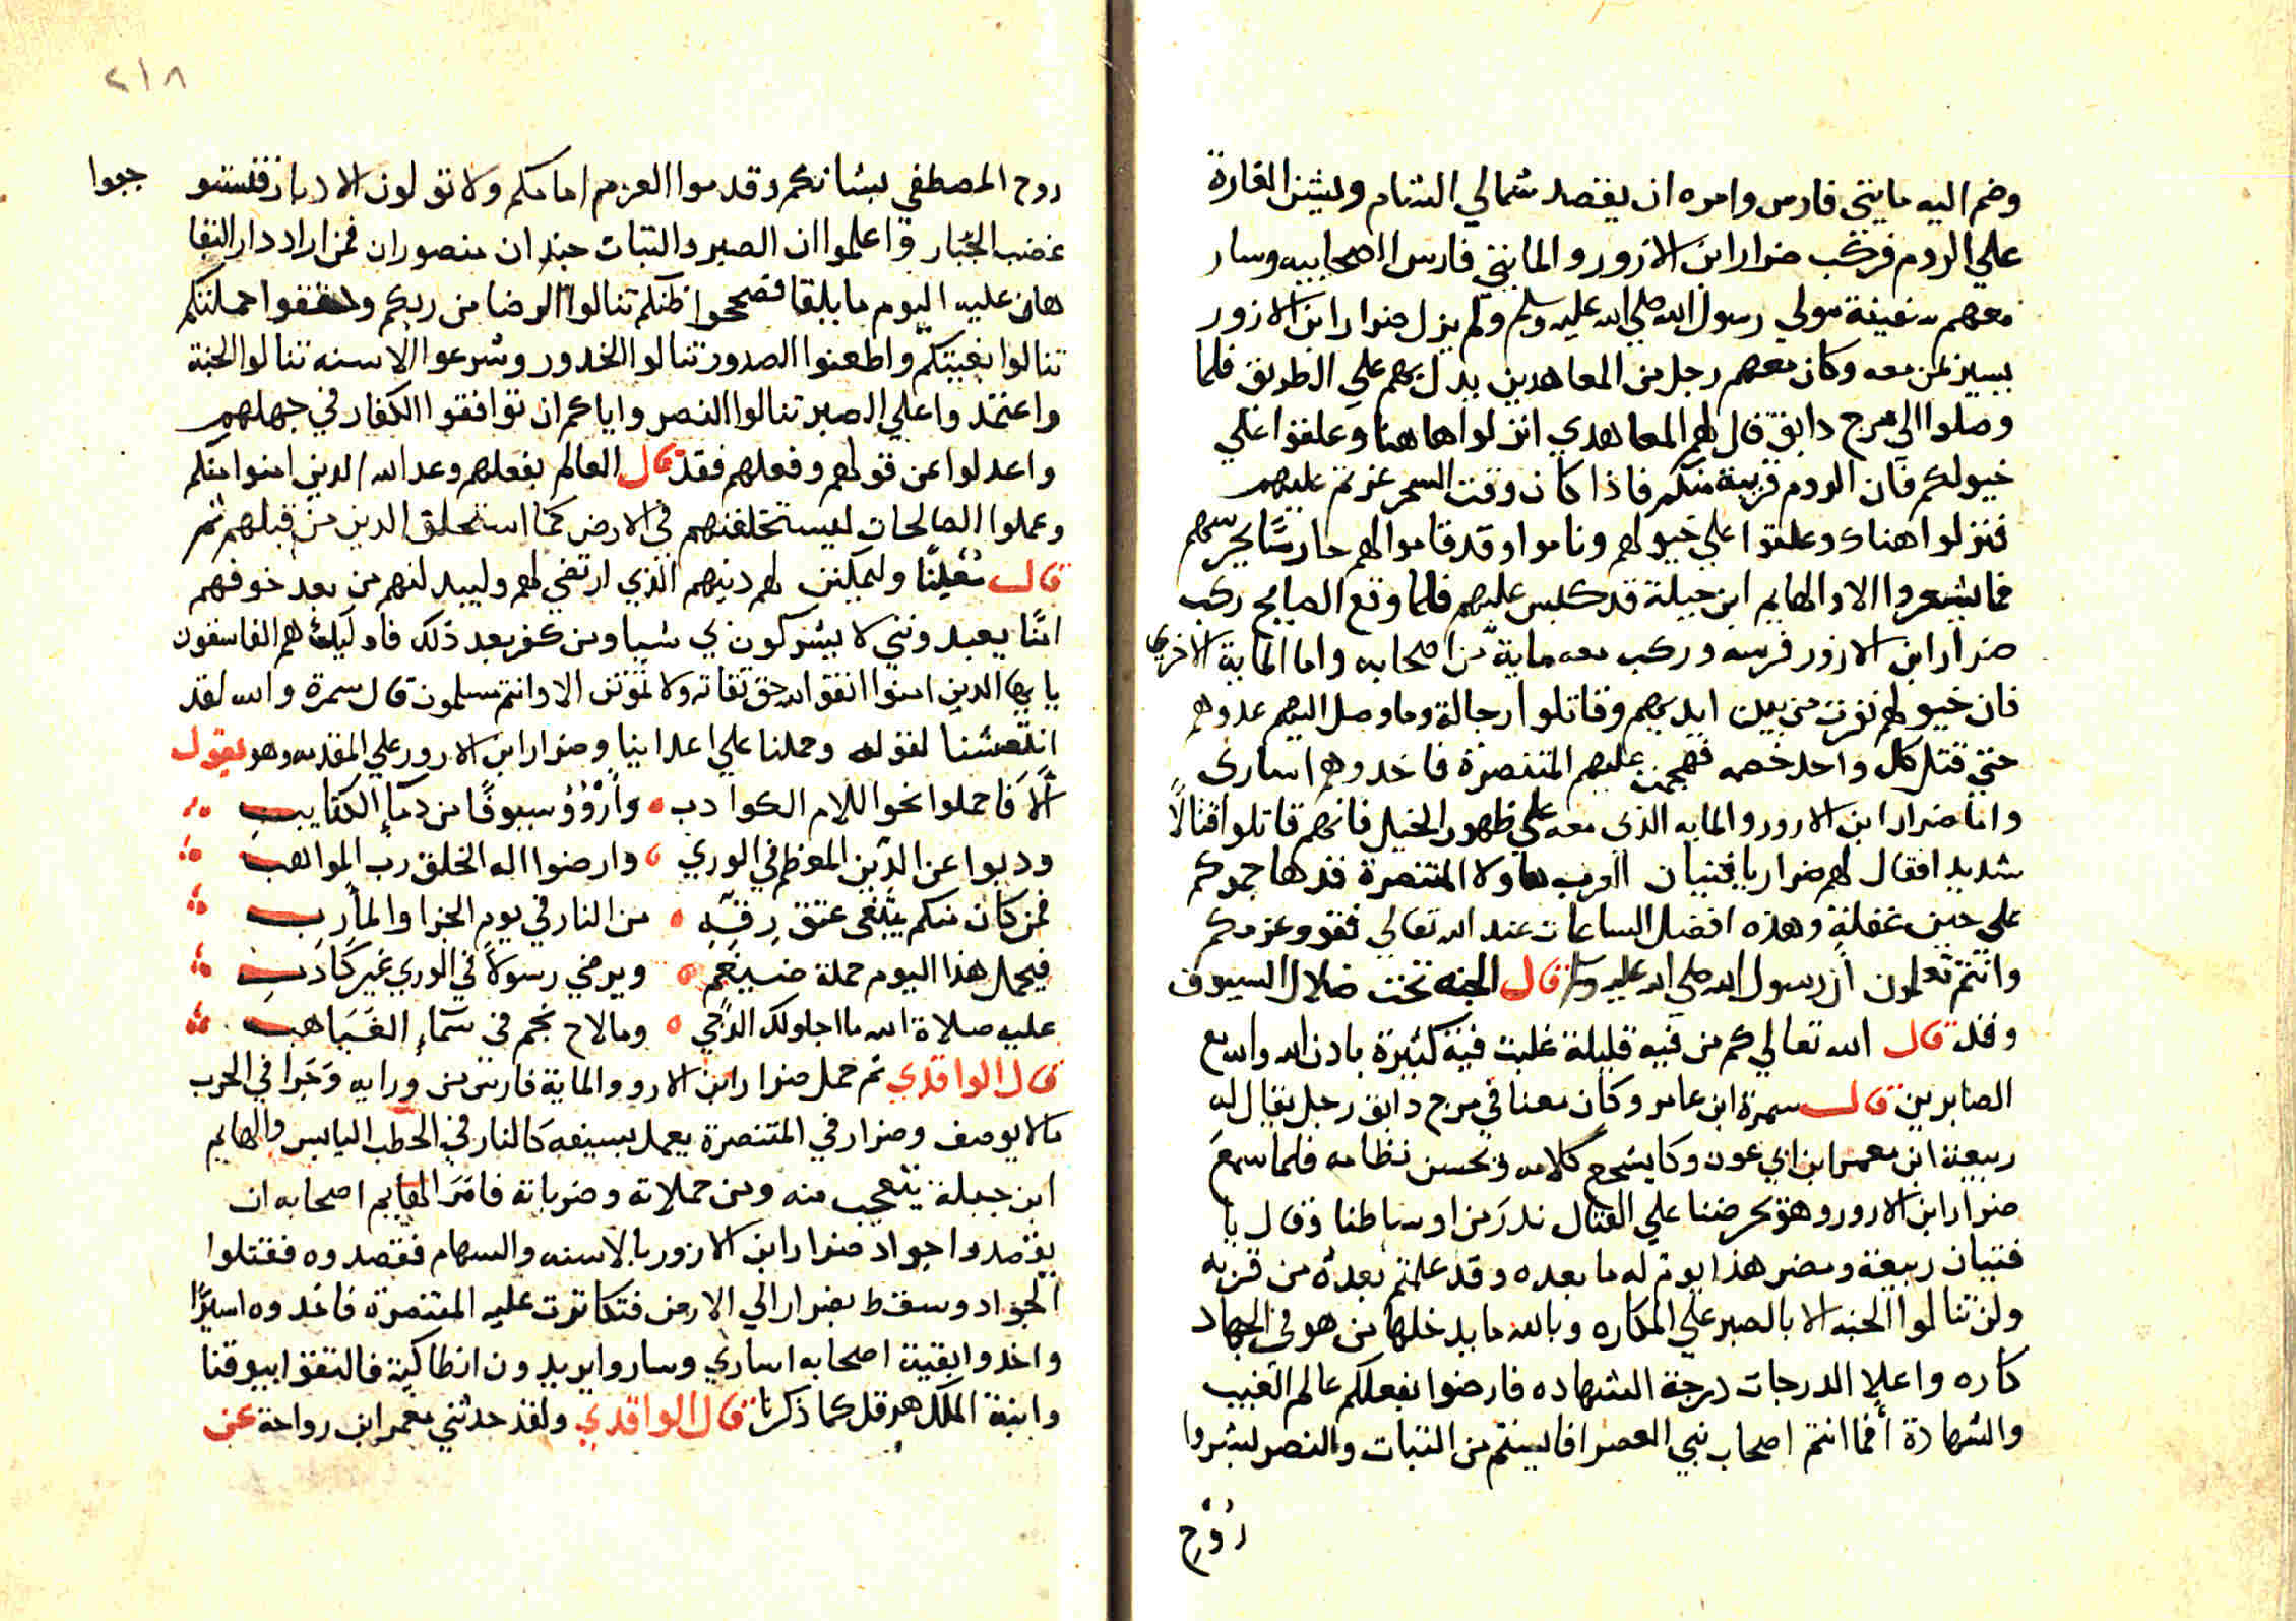 وضم اليه مايتي فارس وامره ان يقصد شمالي الشام وليشن الغارة
علي الروم فركب ضرار ابن الازور والمايتي فارس الصحابيه وسار
معهم سفينة مولي رسول الله صلي الله عليه وسلم ولم يزل ضرار ابن الازور
يسير بمن معه وكان معهم رجل من المعاهدين يدل بهم علي الطريق فلما
وصلوا الي مرج دابق قال لهم المعاهدي انزلوا هاهنا وعلقوا علي
خيولكم فان الروم قريبة منكم فاذا كان وقت السحر غزتم عليهم
فنزلوا هناك وعلقوا علي خيولهم وناموا وقد قاموا لهم حارسًا يحرسهم
فما يشعروا الا والهايم ابن جبلة قد كبس عليهم فلما وقع الصايح ركب
ضرار ابن الازور فرسه وركب معه ماية من اصحابه واما الماية الاخري
فان خيولهم نفرت من بين ايديهم وقاتلوا رجالة وما وصل اليهم عدوهم
حتي قتل كل واحد خصمه فهجمت عليهم المتنصرة فاخدوهم اساري
واما ضرار ابن الازور والمايه الذي معه علي ظهور الخيل فانهم قاتلوا قتالًا
شديدا فقال لهم ضرار يا فتيان العرب هاولا المتنصرة قد هاجموكم
علي حين غفلة وهذه افضل الساعات عند الله تعالي فقووعزمكم
وانتم تعلمون أن رسول الله صلي الله عليه وسلم قال الجنه تحت ضلال السيوف
وقد قال الله تعالي كم من فيه قليلة غلبت فية كثيرة بادن الله والله مع
الصابرين قال سمرة ابن عامر وكان معنا في مرج دابق رجل يقال له
ربيعة ابن معمر ابن ابي عون وكا يشجع كلامه ويحسن نظامه فلما سمع
ضرار ابن الازور وهو يحرضنا علي القتال ندر من اوساطنا وقال يا
فتيان ربيعة ومضر هذا يوم له ما بعده وقد علمتم بعده من قربه
ولن تنالوا الجنه الا بالصبر علي المكاره وبالله ما يدخلها من هو في الجهاد
كاره واعلا الدرجات درجة الشهاده فارضوا بفعلكم عالم الغيب
والشهادة أفما انتم اصحاب نبي العصر افاليتم من الثبات والنصر لبشروا
روح
٢١٨
روح المصطفي بشانكم وقدموا العزم امامكم ولا تولون الادبار فتستو
جبوا
غضب الجبار واعلموا ان الصبر والثبات جندان منصوران فمن اراد دار البقا
هان عليه اليوم ما يلقا فصححوا ظنكم تنالوا الرضا من ربكم وحققوا حملتكم
تنالوا بغيتكم واطعنوا الصدور تنالوا الخدور وشرعوا الاسنه تنالوا الجنة
واعتمدوا علي الصبر تنالوا النصر واياكم ان توافقوا الكفار في جهلهم
واعدلوا عن قولهم وفعلهم فقد قال العالم بفعلهم وعد الله الدين امنوا منكم
وعملوا الصالحات ليستخلفنهم في الارض كما استخلق الدين من قبلهم ثم
قال تعلينا وليمكنن لهم دينهم الذي ارتضي لهم وليبدلنهم من بعد خوفهم
امنًا يعبدونني لا يشركون بي شيا ومن كفر بعد ذلك فاوليك هم الفاسقون
يايها الدين امنوا اتقوا الله حق تقاته ولا تموتن الا وانتم مسلمون قال سمرة والله لقد
انتعشنا لقوله وحملنا علي اعداينا وضرار ابن الازور علي المقدمه وهو يقول
ألا فاحملوا نحو اللام الكوادب وأرووا سيوفًا من دمآء الكتايب
ودبوا عن الدين المعظم في الوري وارضوا اله الخلق رب المواهب
فمن كان منكم يبتغي عتق رقبه من النار في يوم الجزا والمأرب
فيحمل هذا اليوم حملة ضيغم ويرضي رسولا في الوري غير كادب
عليه صلاة الله ما اجلولك الدجي وما لاح نجم في سمآء الغياهب
قال الواقدي ثم حمل ضرار ابن الازور والماية فارس من ورايه وجرا في الحرب
ما لا يوصف وضرار في المتنصرة يعمل بسيفه كالنار في الحطب اليابس والهايم
ابن جبلة يتعجب منه ومن حملاته وضرباته فامر الهايم اصحابه ان
يقصدوا جواد ضرار ابن الازور بالاسنه والسهام فقصدوه فقتلوا
الجواد وسقط بضرار الي الارض فتكاثرت عليه المتنصرة فاخدوه اسيرًا
واخدوا بقية اصحابه اساري وساروا يريدون انطاكية فالتقوا بيوقنا
وابنة الملك هرقل كما ذكرنا قال الواقدي ولقد حدثني معمر ابن رواحة عن